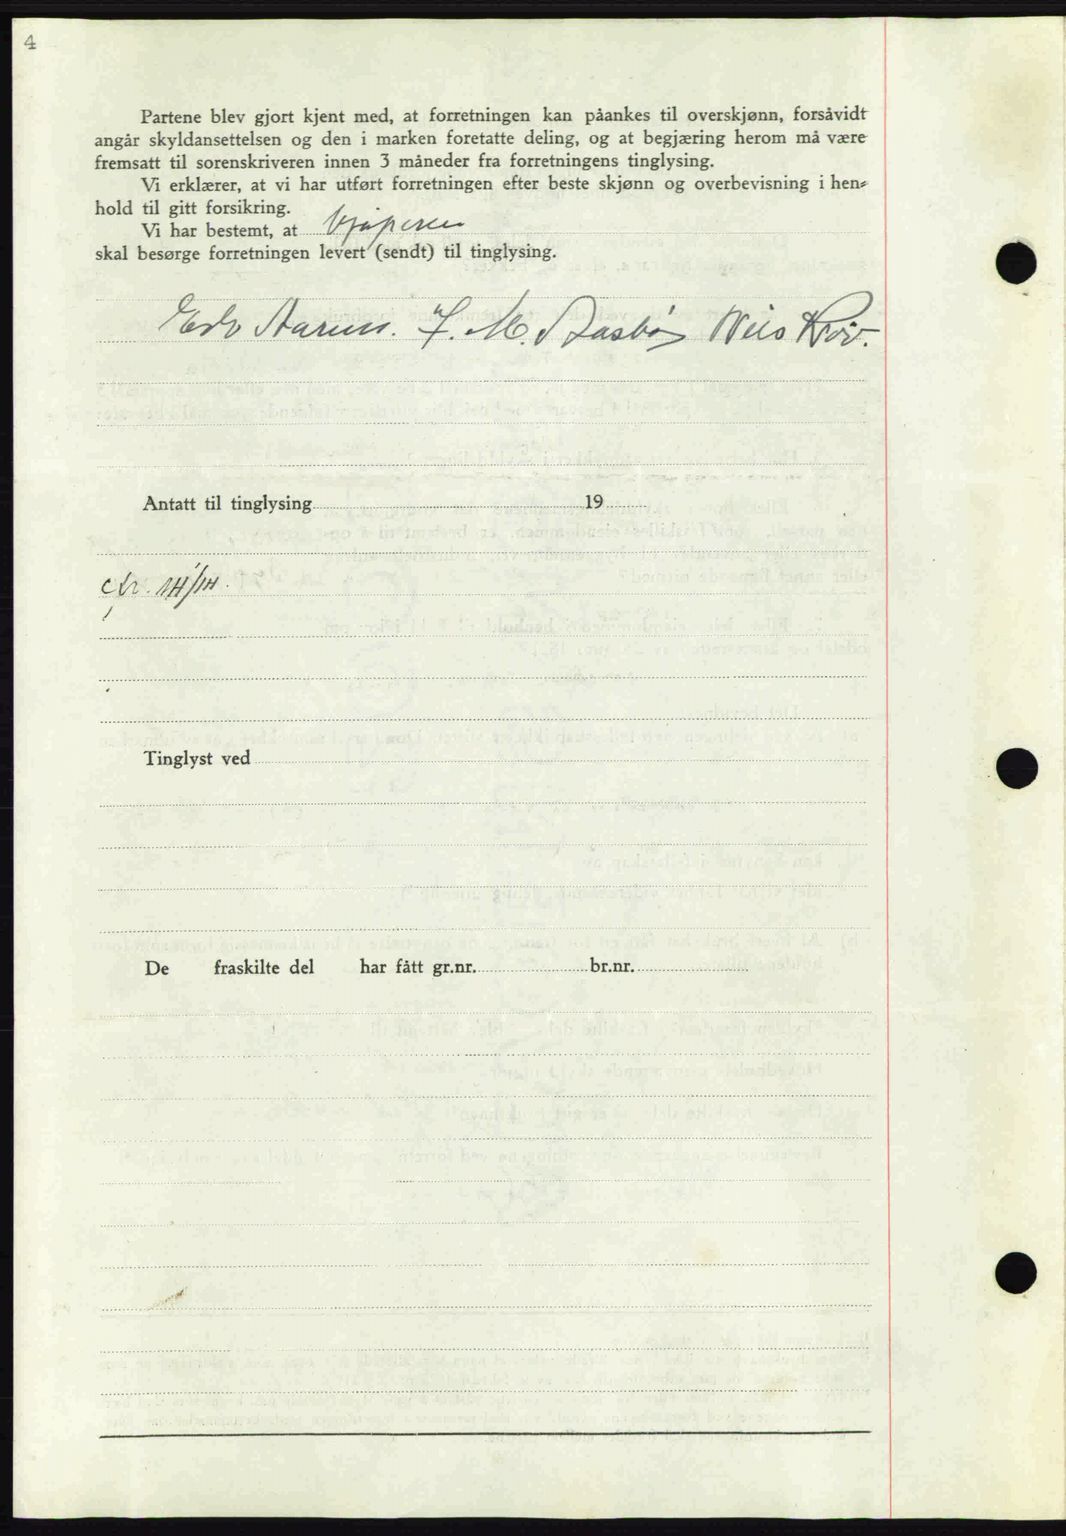 4
Partene blev gjort kjent med, at forretningen kan påankes til overskjønn, forsåvidt
angår skyldansettelsen og den i marken foretatte deling, og at begjæring herom må være
fremsatt til sorenskriveren innen 3 måneder fra forretningens tinglysing.
Vi erklærer, at vi har utført forretningen efter beste skjønn og overbevisning i hen-
hold til gitt forsikring.
Vi har bestemt, at kjøperen
skal besørge forretningen levert (sendt) til tinglysing.
Edv Aarum. J. M. Aasbø Nils
Antatt til tinglysing 19
14/14.
Tinglyst ved
De fraskilte del har fått gr.nr. br.nr.